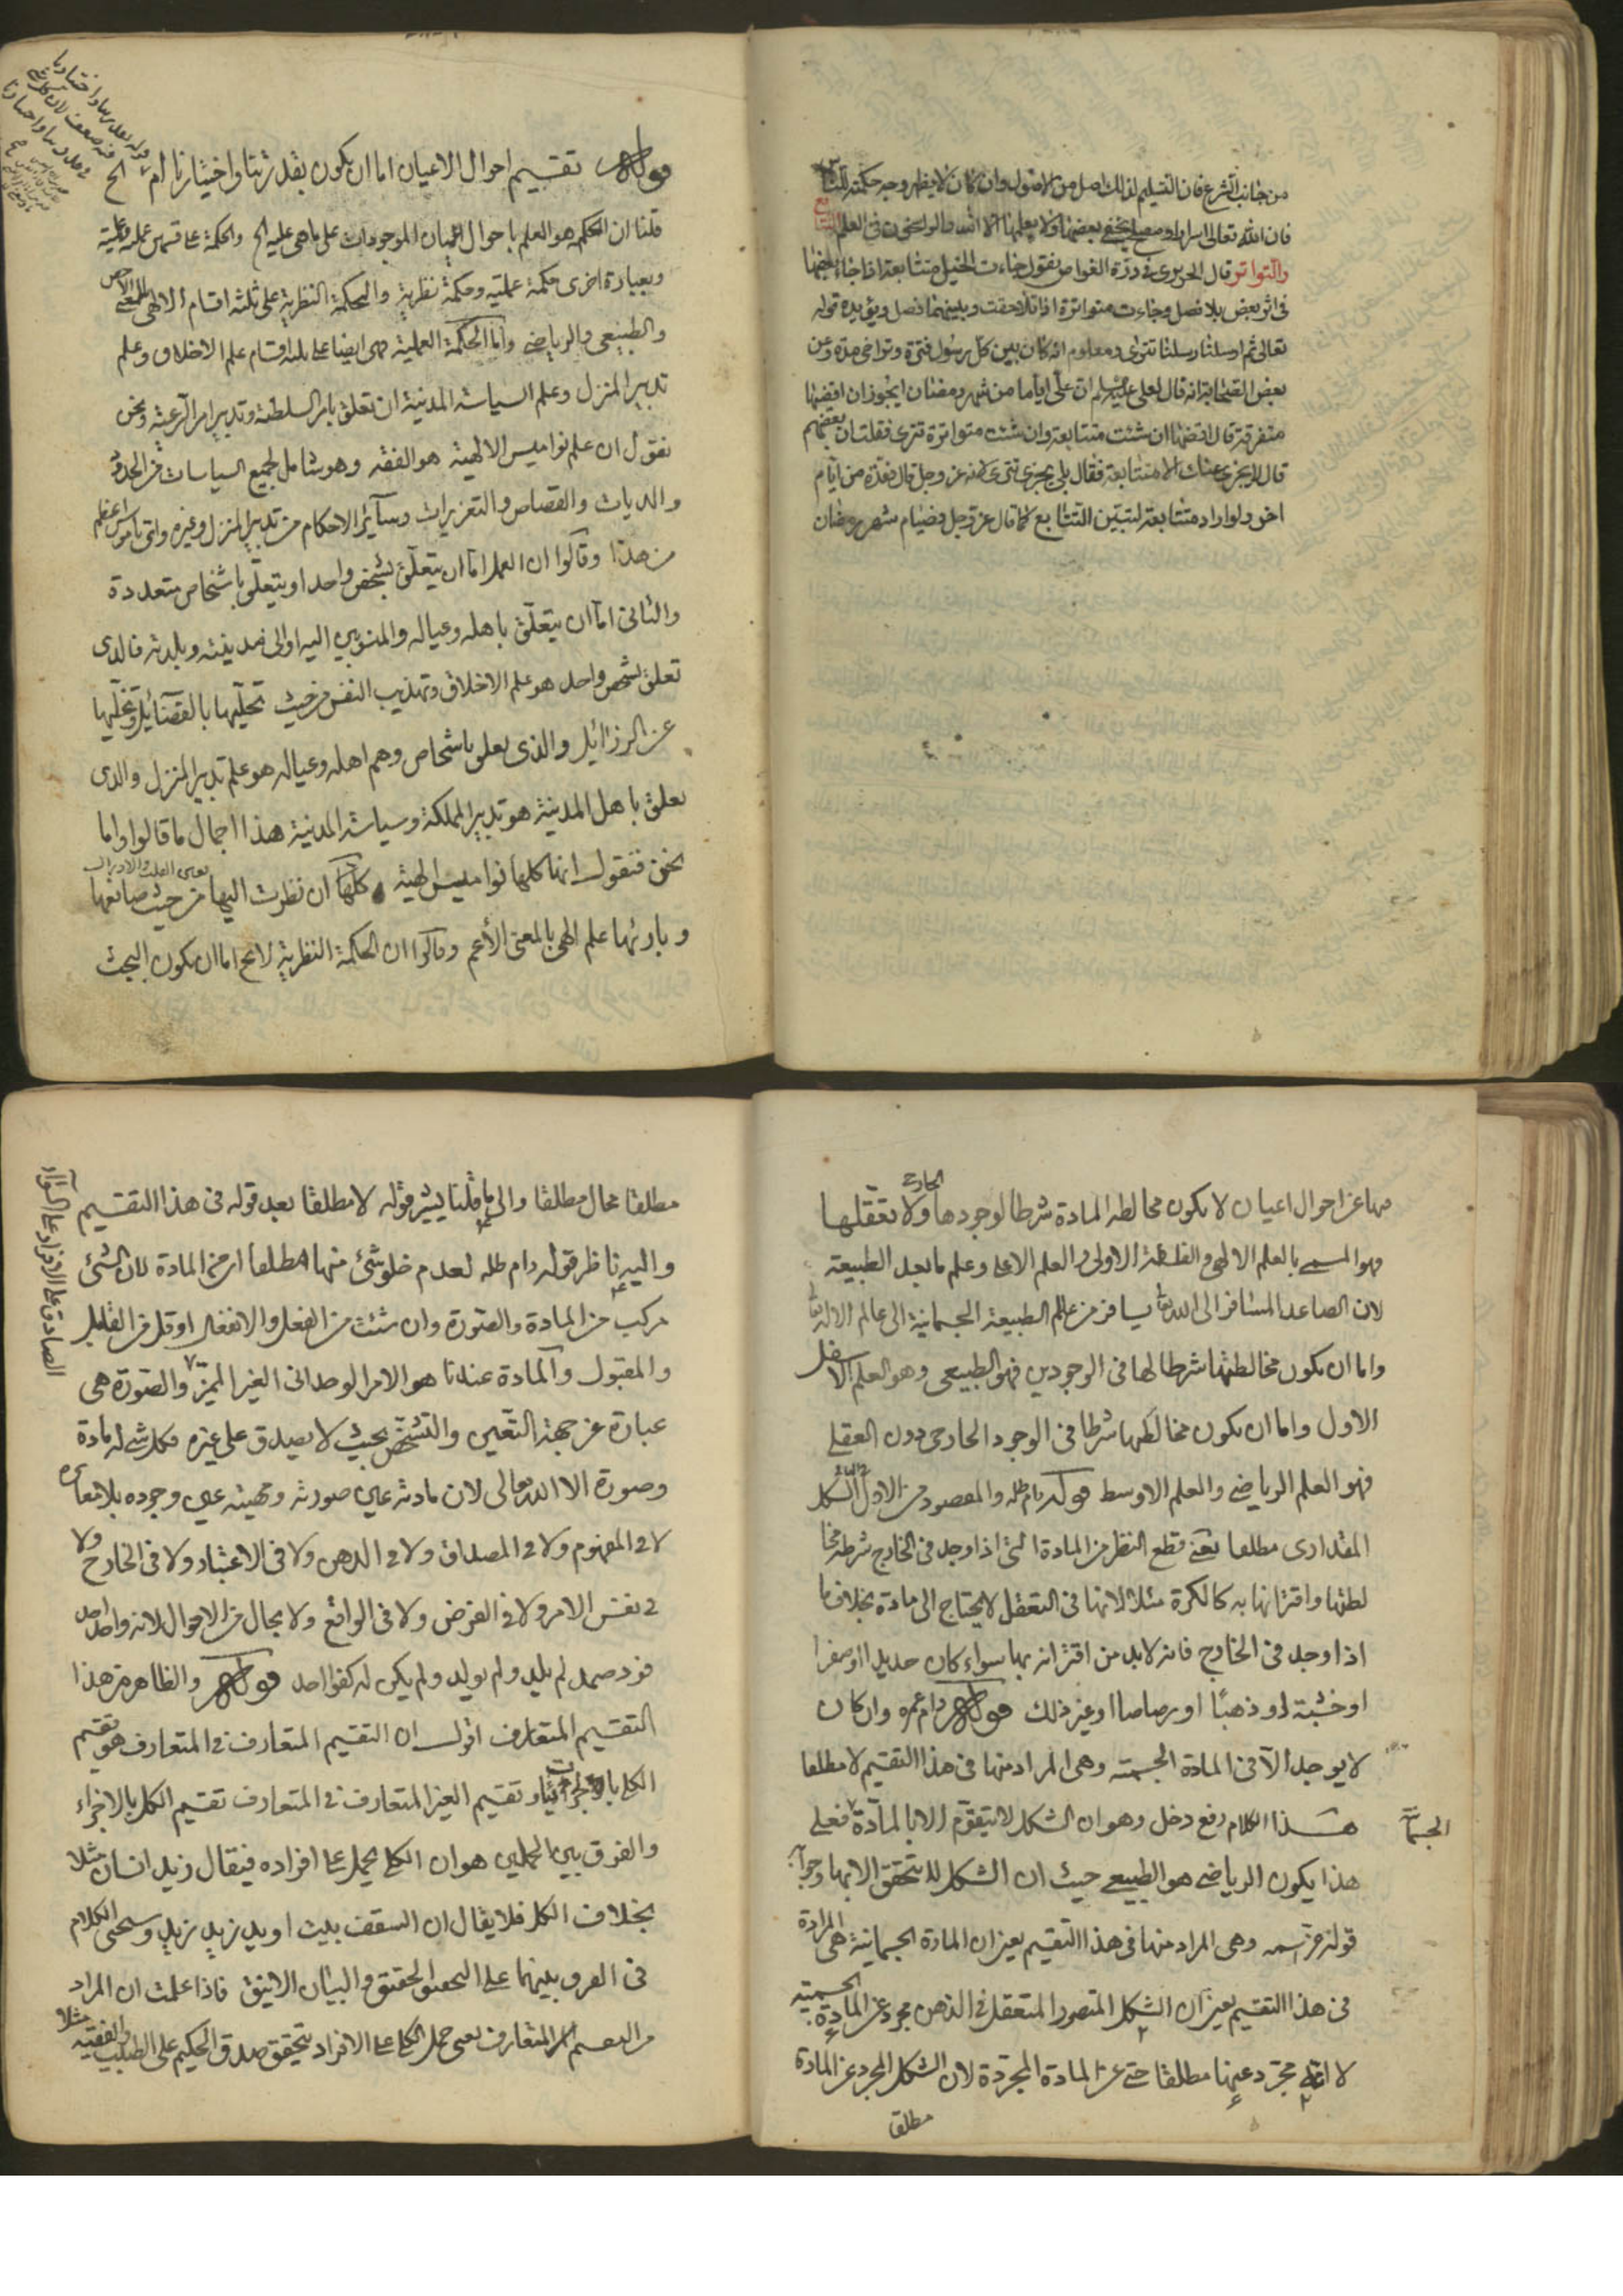 من جانب الشرع فان التسليم لذلك اصل من الاصول وان كان لا يظهر وجه حكمته للناس
فان الله تعالى اسرارا ومصالح يخفى بعضها ولا يعلمها الا الله والراسخون في العلم التتابع
والتواتر قال الحريري في درة الغواص يقول جاءت الخيل متتابعة اذا جاء بعضها
في اثر بعض بلا فصل وجاءت متواترة اذا تلاحقت وبينهما فصل ويؤيده قوله
تعالى ثم ارسلنا رسلنا تترى ومعلوم انه كان بين كل رسول فترة وتراخى مدة وعن
بعض الصحابة انه قال لعلي عليه السلم ان علي اياما من شهر رمضان ايجوز ان اقضيها
متفرقة قال اقضها ان شئت متتابعة وان شئت متواترة تترى فقلت ان بعضهم
قال لا يجزي عنك الا متتابعة فقال بلى يجزي تترى لانه عز وجل قال فعدة من ايام
اخر ولو اراد متتابعة لتبين التتابع كما قال عز وجل فصيام شهر رمضان
قوله تقسيم احوال الاعيان اما ان يكون بقدرتنا واختيارنا ام الخ
قلنا ان الحكمة هو العلم باحوال اعيان الموجودات على ما هي عليه الخ والحكمة على قسمين عملية وعلمية
وبعبارة اخرى حكمة عملية وحكمة نظرية والحكمة النظرية على ثلثة اقسام الالهي بالمعنى الاخص
والطبيعي والرياضي واما الحكمة العملية فهي ايضا على ثلثة اقسام علم الاخلاق وعلم
تدبير المنزل وعلم السياسة المدنية ان تعلق بامر السلطنة وتدبير امر الرعية ونحن
نقول ان علم نواميس الالهية هو الفقه وهو شامل لجميع السياسات من الحدود
والديات والقصاص والتعزيرات وسائر الاحكام من تدبير المنزل وغيره واي ناموس اعظم
من هذا وقالوا ان العمل اما ان يتعلق بشخص واحد او يتعلق باشخاص متعددة
والثاني اما ان يتعلق باهله وعياله والمنسوبين اليه او الى مدينته وبلدته فالذي
تعلق بشخص واحد هو علم الاخلاق وتهذيب النفس من حيث تحليها بالفضائل وتخليها
عن الرذائل والذي تعلق باشخاص وهم اهله وعياله هو علم تدبير المنزل والذي
تعلق باهل المدينة هو تدبير المملكة وسياسة المدنية هذا اجمال ما قالوا واما
نحن فنقول انها كلها نواميس الهية كلها ان نظرت اليها من حيث صانعها
وبارئها علم الهي بالمعنى الأعم وقالوا ان الحكمة النظرية لا يخ اما ان يكون البحث
فيها عن احوال اعيان لا يكون مخالطة المادة شرطا لوجودها الخارجي ولا تعقلها
فهو المسمى بالعلم الالهي والفلسفة الاولى والعلم الاعلى وعلم ما بعد الطبيعة
لان الصاعد المسافر الى الله تعالى يسافر من عالم الطبيعة الجسمانية الى عالم الاله تعالى
واما ان يكون مخالطتها شرطا لها في الوجودين فهو الطبيعي وهو العلم الاسفل
الاول واما ان يكون مخالطتها شرطا في الوجود الخارجي دون العقلي
فهو العلم الرياضي والعلم الاوسط قوله دام ظله والمقصود من الاول الشكل
المقداري مطلقا يعني قطع النظر من المادة التي اذا وجد في الخارج شرطه مخا
لطتها واقترانها به كالكرة مثلا لانها في التعقل لا يحتاج الى مادة بخلاف ما
اذا وجد في الخارج فانه لا بد من اقترانه بها سواء كان حديدا او صفرا
او خشبة او ذهبا او رصاصا او غير ذلك قوله دام عمره وان كان
لا يوجد الا في المادة الجسمية وهي المراد منها في هذا التقسيم لا مطلقا
هذا الكلام دفع دخل وهو ان الشكل لا يتقوم الا بالمادة فعلى
هذا يكون الرياضي هو الطبيعي حيث ان الشكل لا يتحقق الا بها وجوابه
قوله وهي المراد منها في هذا التقسيم يعني ان المادة الجسمانية هي المرادة
في هذا التقسيم يعني ان الشكل المتصور المتعقل في الذهن مجرد عن المادة الجسمية
لا انه مجرد عنها مطلقا حتى عن المادة المجردة لان الشكل المجرد عن المادة
مطلق
مطلقا محال مطلقا والى ما قلنا يشير قوله لا مطلقا بعد قوله في هذا التقسيم
واليه ناظر قوله دام ظله لعدم خلو شيء منها مطلقا اي من المادة لان الشيء
مركب من المادة والصورة وان شئت من الفعل والانفعال او قل من القابل
والمقبول والمادة عندنا هو الامر الوحداني الغير المميز والصورة هي
عبارة عن جهة التعين والتشخص بحيث لا يصدق على غيره فكل شيء له مادة
وصورة الا الله تعالى لان مادته عين صورته ومهيته عين وجوده بلا مغايرة
لا في المفهوم ولا في المصداق ولا في الذهن ولا في الاعتبار ولا في الخارج ولا
في نفس الامر ولا في الفرض ولا في الواقع ولا بحال من الاحوال لانه واحد احد
فرد صمد لم يلد ولم يولد ولم يكن له كفوا احد قوله والظاهر من هذا
التقسيم المتعارف اقول ان التقسيم المتعارف في المتعارف هو تقسيم
الكلي بالجزئيات وتقسيم الغير المتعارف في المتعارف تقسيم الكل بالاجزاء
والفرق بين الحملين هو ان الكلي يحمل على افراده فيقال زيد انسان مثلا
بخلاف الكل فلا يقال ان السقف بيت او يد زيد زيد وسيجيء الكلام
في الفرق بينهما على التحقيق الحقيق والبيان الانيق فاذا علمت ان المراد
من التقسيم المتعارف يعني حمل الكلي على الافراد يتحقق صدق الحكيم على الطبيب والفقيه مثلا